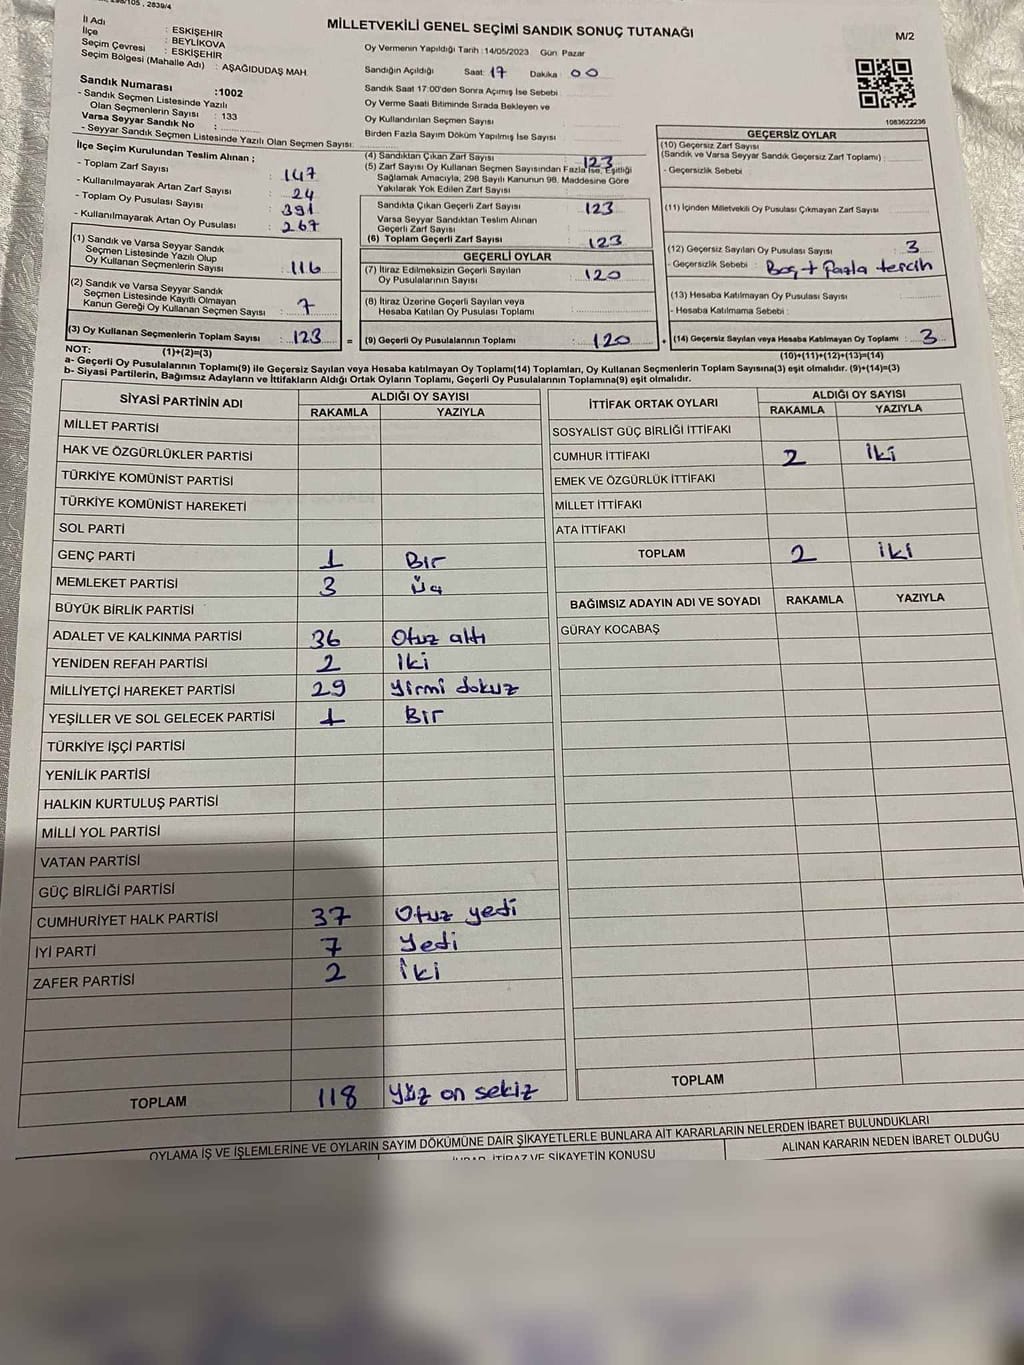 298/105 , 2839/4
MİLLETVEKİLİ GENEL SEÇİMİ SANDIK SONUÇ TUTANAĞI
M/2
İl Adı : ESKİŞEHİR
İlçe : BEYLİKOVA
Seçim Çevresi : ESKİŞEHİR
Seçim Bölgesi (Mahalle Adı) : AŞAĞIDUDAŞ MAH.
Sandık Numarası :1002
- Sandık Seçmen Listesinde Yazılı
Olan Seçmenlerin Sayısı : 133
Varsa Seyyar Sandık No :
- Seyyar Sandık Seçmen Listesinde Yazılı Olan Seçmen Sayısı:
Oy Vermenin Yapıldığı Tarih :14/05/2023 Gün: Pazar
Sandığın Açıldığı Saat: 17 Dakika : 00
Sandık Saat 17:00'den Sonra Açımış İse Sebebi :
Oy Verme Saati Bitiminde Sırada Bekleyen ve
Oy Kullandırılan Seçmen Sayısı
Birden Fazla Sayım Döküm Yapılmış İse Sayısı
1083622236
İlçe Seçim Kurulundan Teslim Alınan ;
- Toplam Zarf Sayısı : 147
- Kullanılmayarak Artan Zarf Sayısı : 24
- Toplam Oy Pusulası Sayısı : 391
- Kullanılmayarak Artan Oy Pusulası : 267
(1) Sandık ve Varsa Seyyar Sandık
Seçmen Listesinde Yazılı Olup
Oy Kullanan Seçmenlerin Sayısı : 116
(2) Sandık ve Varsa Seyyar Sandık
Seçmen Listesinde Kayıtlı Olmayan
Kanun Gereği Oy Kullanan Seçmen Sayısı : 7
(3) Oy Kullanan Seçmenlerin Toplam Sayısı : 123 =
(4) Sandıktan Çıkan Zarf Sayısı : 123
(5) Zarf Sayısı Oy Kullanan Seçmen Sayısından Fazla İse, Eşitliği
Sağlamak Amacıyla, 298 Sayılı Kanunun 98. Maddesine Göre
Yakılarak Yok Edilen Zarf Sayısı :
Sandıkta Çıkan Geçerli Zarf Sayısı : 123
Varsa Seyyar Sandıktan Teslim Alınan
Geçerli Zarf Sayısı :
(6) Toplam Geçerli Zarf Sayısı : 123
GEÇERLİ OYLAR
(7) İtiraz Edilmeksizin Geçerli Sayılan
Oy Pusulalarının Sayısı : 120
(8) İtiraz Üzerine Geçerli Sayılan veya
Hesaba Katılan Oy Pusulası Toplamı :
(9) Geçerli Oy Pusulalarının Toplamı : 120 +
GEÇERSİZ OYLAR
(10) Geçersiz Zarf Sayısı
(Sandık ve Varsa Seyyar Sandık Geçersiz Zarf Toplamı) :
- Geçersizlik Sebebi :
(11) İçinden Milletvekili Oy Pusulası Çıkmayan Zarf Sayısı :
(12) Geçersiz Sayılan Oy Pusulası Sayısı : 3
- Geçersizlik Sebebi : Boş + Fazla tercih
(13) Hesaba Katılmayan Oy Pusulası Sayısı :
- Hesaba Katılmama Sebebi :
(14) Geçersiz Sayılan veya Hesaba Katılmayan Oy Toplamı : 3
NOT: (1)+(2)=(3)
(10)+(11)+(12)+(13)=(14)
a- Geçerli Oy Pusulalarının Toplamı(9) ile Geçersiz Sayılan veya Hesaba katılmayan Oy Toplamı(14) Toplamları, Oy Kullanan Seçmenlerin Toplam Sayısına(3) eşit olmalıdır. (9)+(14)=(3)
b- Siyasi Partilerin, Bağımsız Adayların ve İttifakların Aldığı Ortak Oyların Toplamı, Geçerli Oy Pusulalarının Toplamına(9) eşit olmalıdır.
SİYASİ PARTİNİN ADI ALDIĞI OY SAYISI
RAKAMLA YAZIYLA
MİLLET PARTİSİ
HAK VE ÖZGÜRLÜKLER PARTİSİ
TÜRKİYE KOMÜNİST PARTİSİ
TÜRKİYE KOMÜNİST HAREKETİ
SOL PARTİ
GENÇ PARTİ 1 Bir
MEMLEKET PARTİSİ 3 Üç
BÜYÜK BİRLİK PARTİSİ
ADALET VE KALKINMA PARTİSİ 36 Otuz altı
YENİDEN REFAH PARTİSİ 2 İki
MİLLİYETÇİ HAREKET PARTİSİ 29 Yirmi dokuz
YEŞİLLER VE SOL GELECEK PARTİSİ 1 Bir
TÜRKİYE İŞÇİ PARTİSİ
YENİLİK PARTİSİ
HALKIN KURTULUŞ PARTİSİ
MİLLİ YOL PARTİSİ
VATAN PARTİSİ
GÜÇ BİRLİĞİ PARTİSİ
CUMHURİYET HALK PARTİSİ 37 Otuz yedi
İYİ PARTİ 7 Yedi
ZAFER PARTİSİ 2 İki
TOPLAM 118 Yüz on sekiz
İTTİFAK ORTAK OYLARI ALDIĞI OY SAYISI
RAKAMLA YAZIYLA
SOSYALİST GÜÇ BİRLİĞİ İTTİFAKI
CUMHUR İTTİFAKI 2 İki
EMEK VE ÖZGÜRLÜK İTTİFAKI
MİLLET İTTİFAKI
ATA İTTİFAKI
TOPLAM 2 İki
BAĞIMSIZ ADAYIN ADI VE SOYADI RAKAMLA YAZIYLA
GÜRAY KOCABAŞ
TOPLAM
OYLAMA İŞ VE İŞLEMLERİNE VE OYLARIN SAYIM DÖKÜMÜNE DAİR ŞİKAYETLERLE BUNLARA AİT KARARLARIN NELERDEN İBARET BULUNDUKLARI
İHBAR, İTİRAZ VE ŞİKAYETİN KONUSU
ALINAN KARARIN NEDEN İBARET OLDUĞU